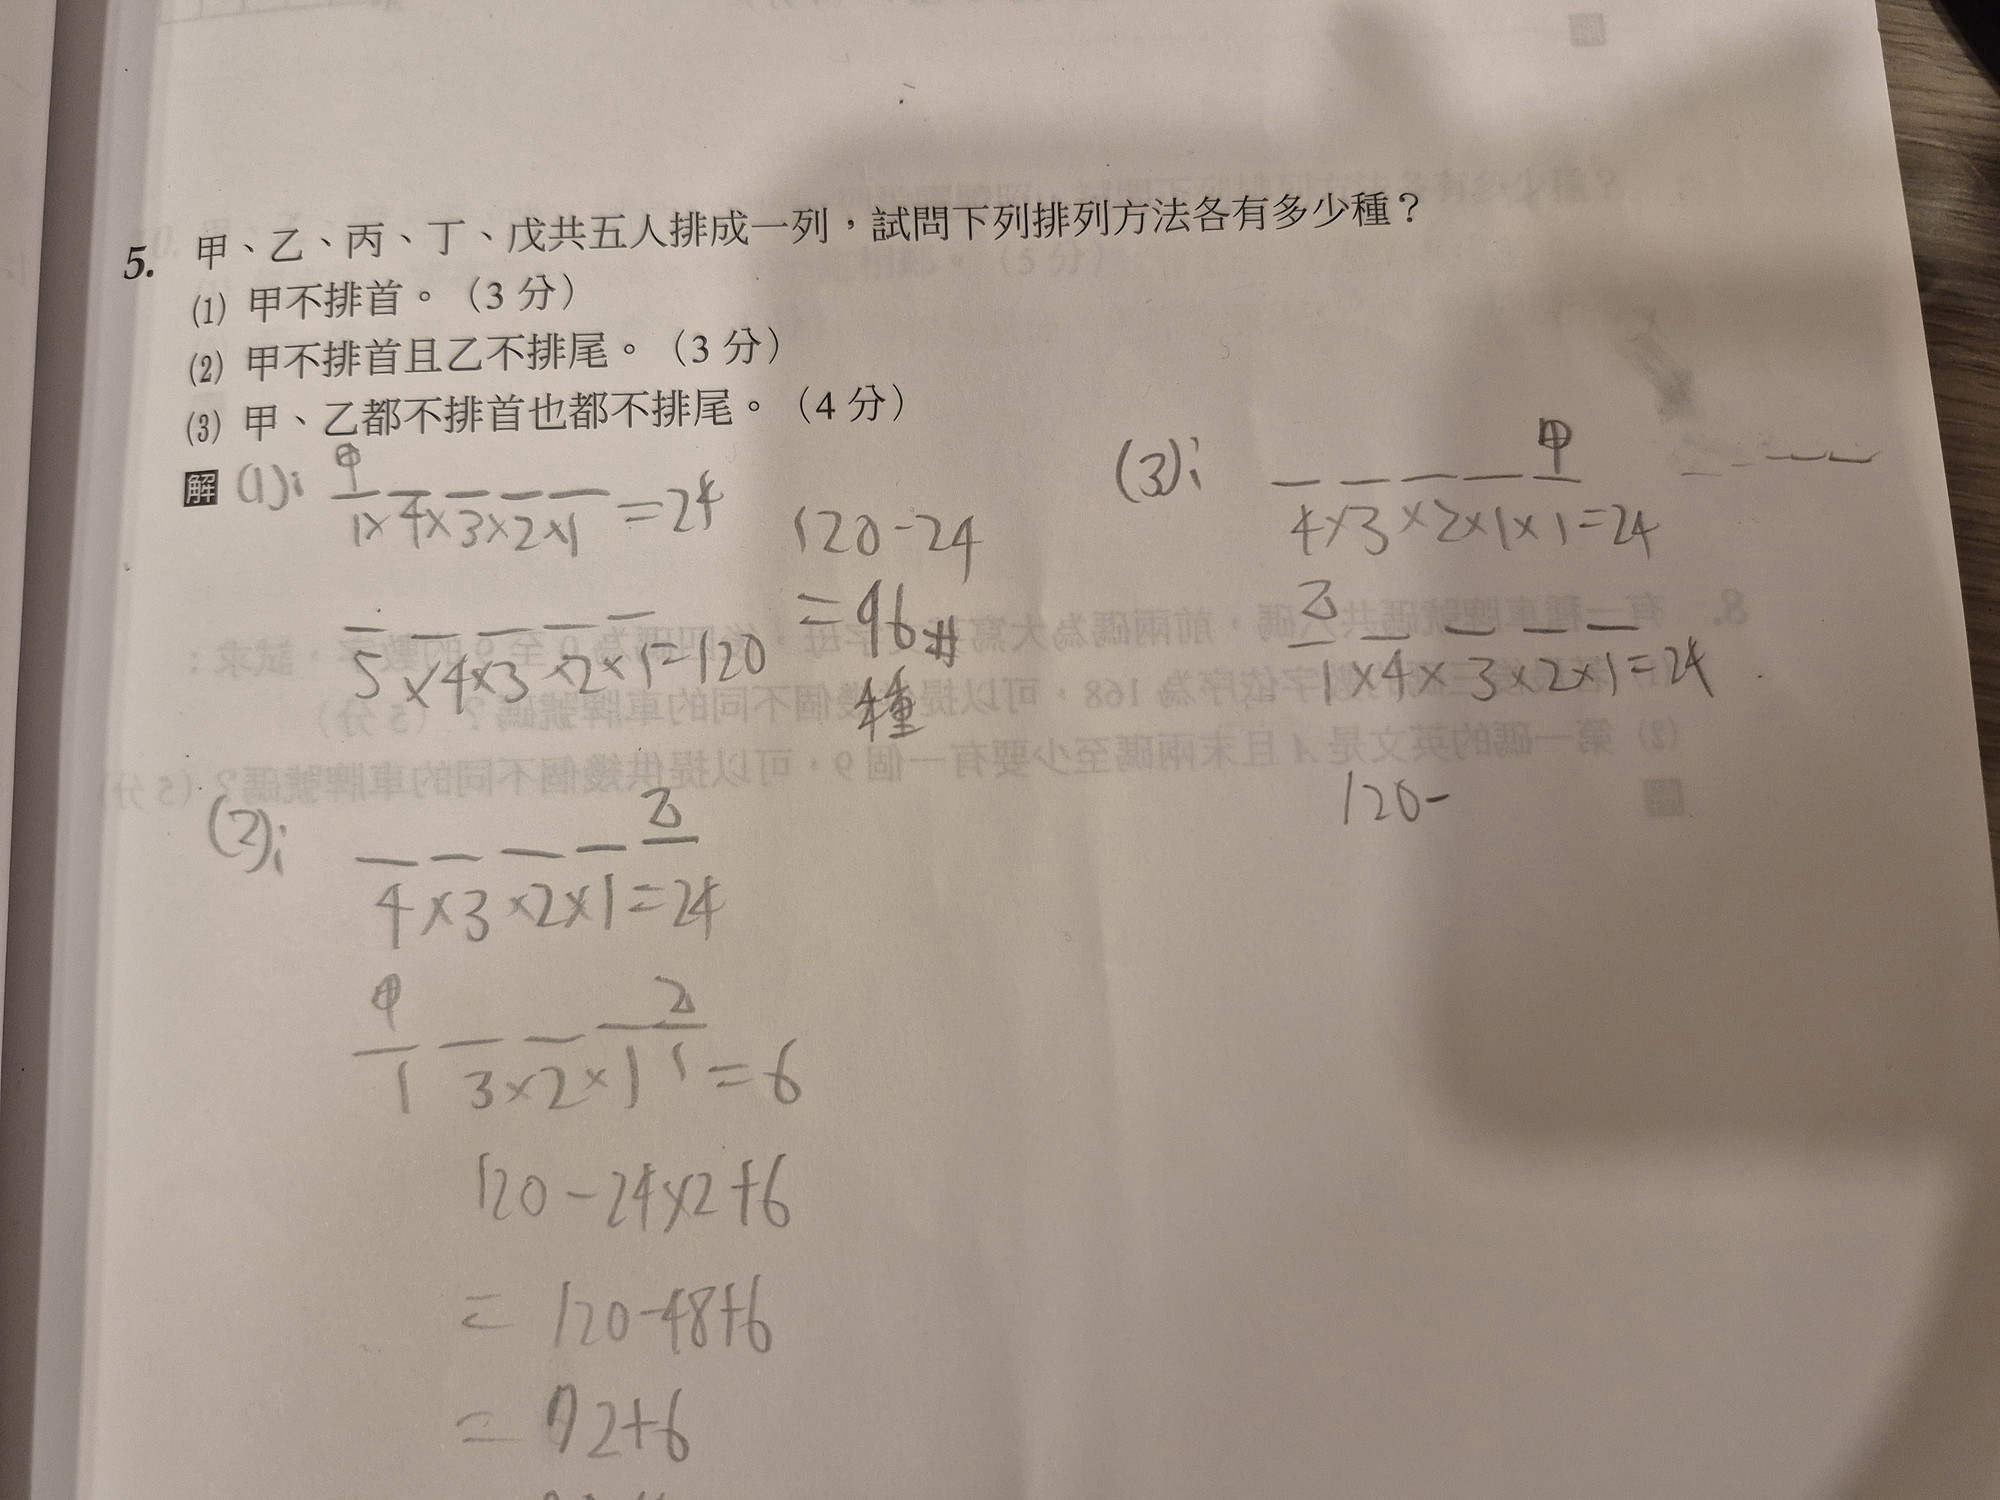 5. 甲、乙、丙、丁、戊共五人排成一列，試問下列排列方法各有多少種？
(1) 甲不排首。（3 分）
(2) 甲不排首且乙不排尾。（3 分）
(3) 甲、乙都不排首也都不排尾。（4 分）
解 (1):
甲
1×4×3×2×1=24
5×4×3×2×1=120
120-24
=96#
種
(2):
乙
4×3×2×1=24
甲 乙
1 3×2×1 1=6
120-24×2+6
=120-48+6
=72+6
(3):
甲
4×3×2×1×1=24
乙
1×4×3×2×1=24
120-